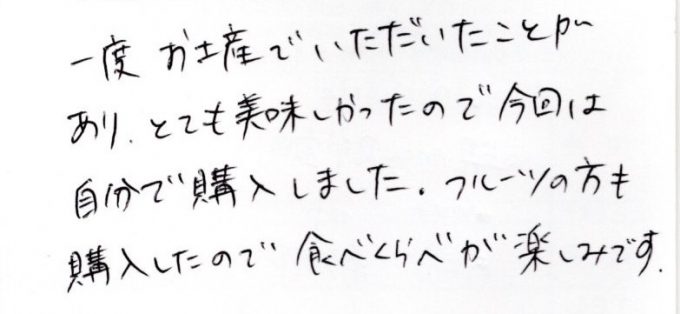 一度 お土産でいただいたことが
あり、とても美味しかったので今回は
自分で購入しました。フルーツの方も
購入したので 食べくらべが楽しみです。